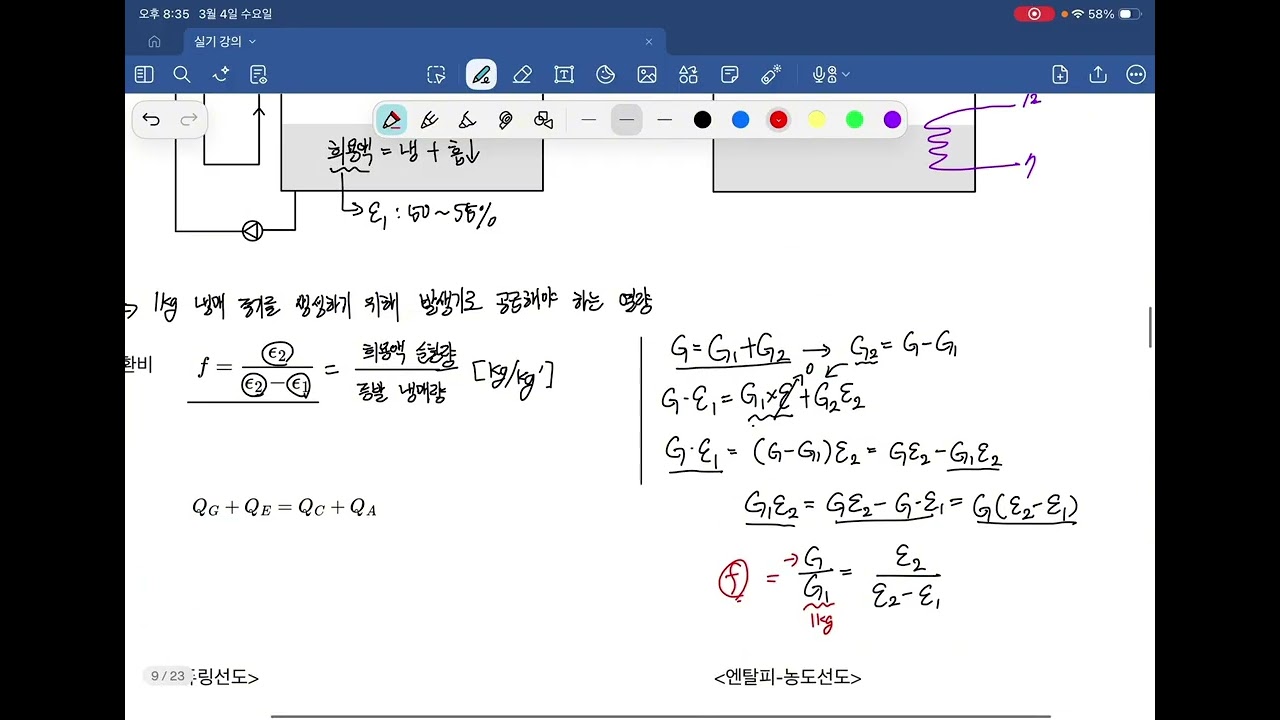 오후 8:35 3월 4일 수요일
58%
실기 강의
12
희용액 = 냉 + 흡↓
7
ε₁ : 50 ~ 55%
→ 1kg 냉매 증기를 생성하기 위해 발생기로 공급해야 하는 열량
환비 f = ϵ₂ / (ϵ₂ − ϵ₁) = 희용액 순환량 / 증발 냉매량 [kg/kg']
G = G₁ + G₂ → G₂ = G − G₁
G · ε₁ = G₁ × ε + G₂ε₂
0
G · ε₁ = (G − G₁)ε₂ = Gε₂ − G₁ε₂
G₁ε₂ = Gε₂ − G · ε₁ = G(ε₂ − ε₁)
Q_G + Q_E = Q_C + Q_A
f = → G / G₁ = ε₂ / (ε₂ − ε₁)
1kg
9 / 23
링선도>
<엔탈피-농도선도>